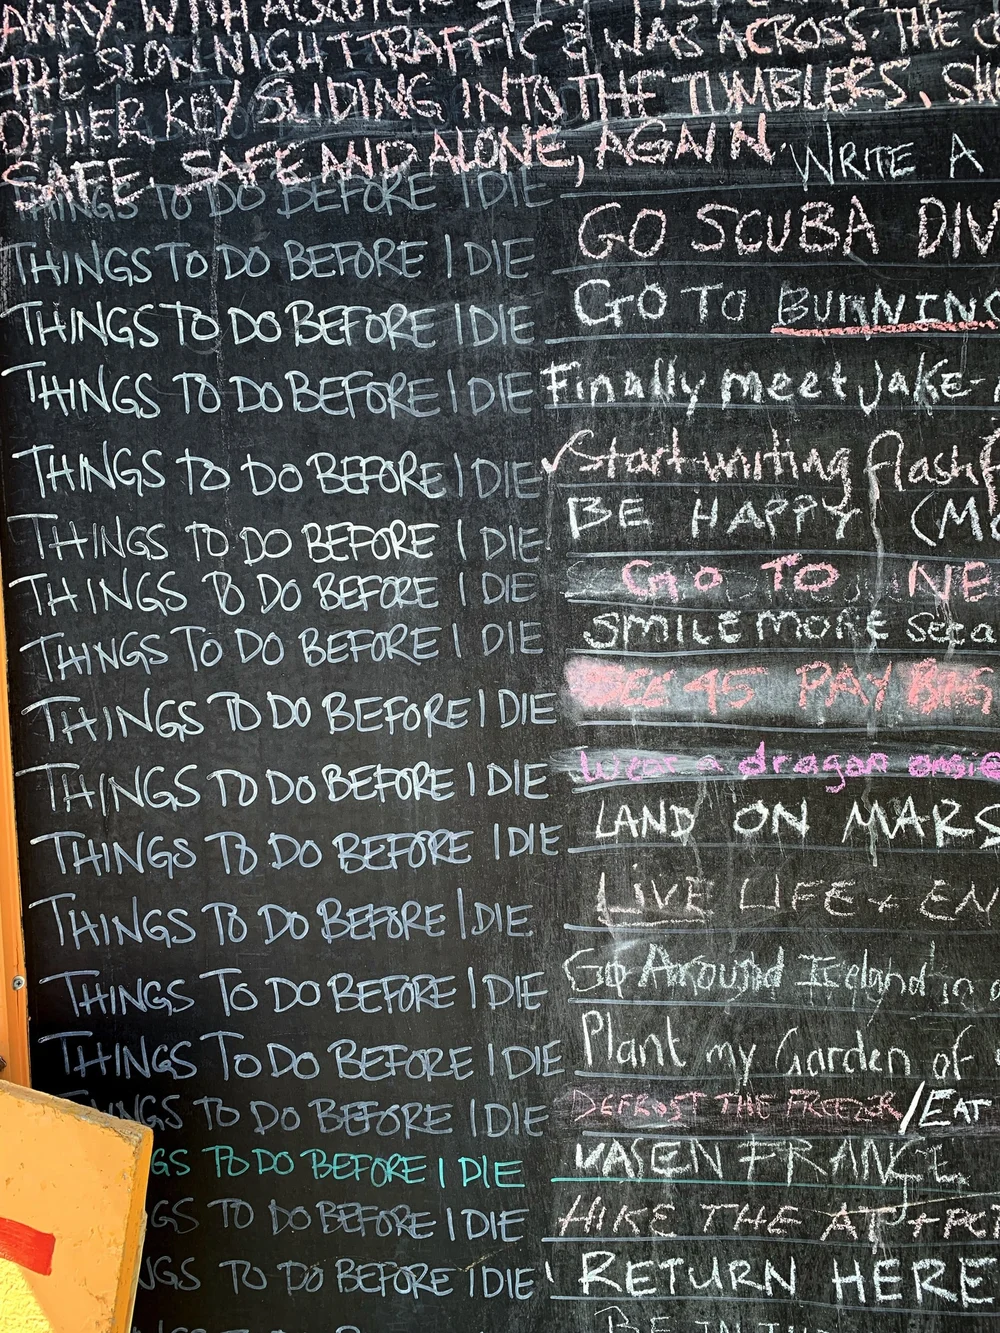 AWAY WITH
THE SLOW NIGHT TRAFFIC & WAS ACROSS. THE
OF HER KEY SLIDING INTO THE TUMBLERS. SH
SAFE. SAFE AND ALONE, AGAIN.
THINGS TO DO BEFORE I DIE WRITE A
THINGS TO DO BEFORE I DIE GO SCUBA DIV
THINGS TO DO BEFORE I DIE GO TO BURNING
THINGS TO DO BEFORE I DIE Finally meet Jake-
THINGS TO DO BEFORE I DIE ✓ Start writing flashf
THINGS TO DO BEFORE I DIE BE HAPPY (M
THINGS TO DO BEFORE I DIE GO TO NE
THINGS TO DO BEFORE I DIE SMILE MORE
THINGS TO DO BEFORE I DIE SEE 45 PAY
THINGS TO DO BEFORE I DIE Wear a dragon onsie
THINGS TO DO BEFORE I DIE LAND ON MARS
THINGS TO DO BEFORE I DIE LIVE LIFE + EN
THINGS TO DO BEFORE I DIE Go Around Iceland in a
THINGS TO DO BEFORE I DIE Plant my Garden of
NGS TO DO BEFORE I DIE DEFROST THE FREEZER/EAT
GS TO DO BEFORE I DIE
GS TO DO BEFORE I DIE HIKE THE AT +
NGS TO DO BEFORE I DIE! RETURN HERE
BE IN